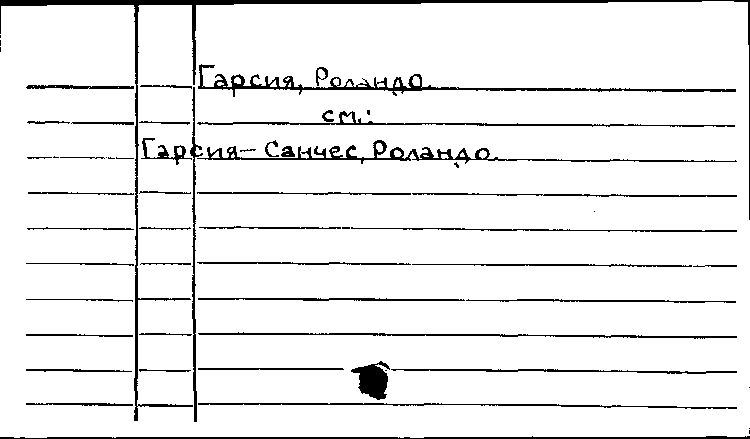 Гарсия, Роландо.
см.:
Гарсия-Санчес, Роландо.